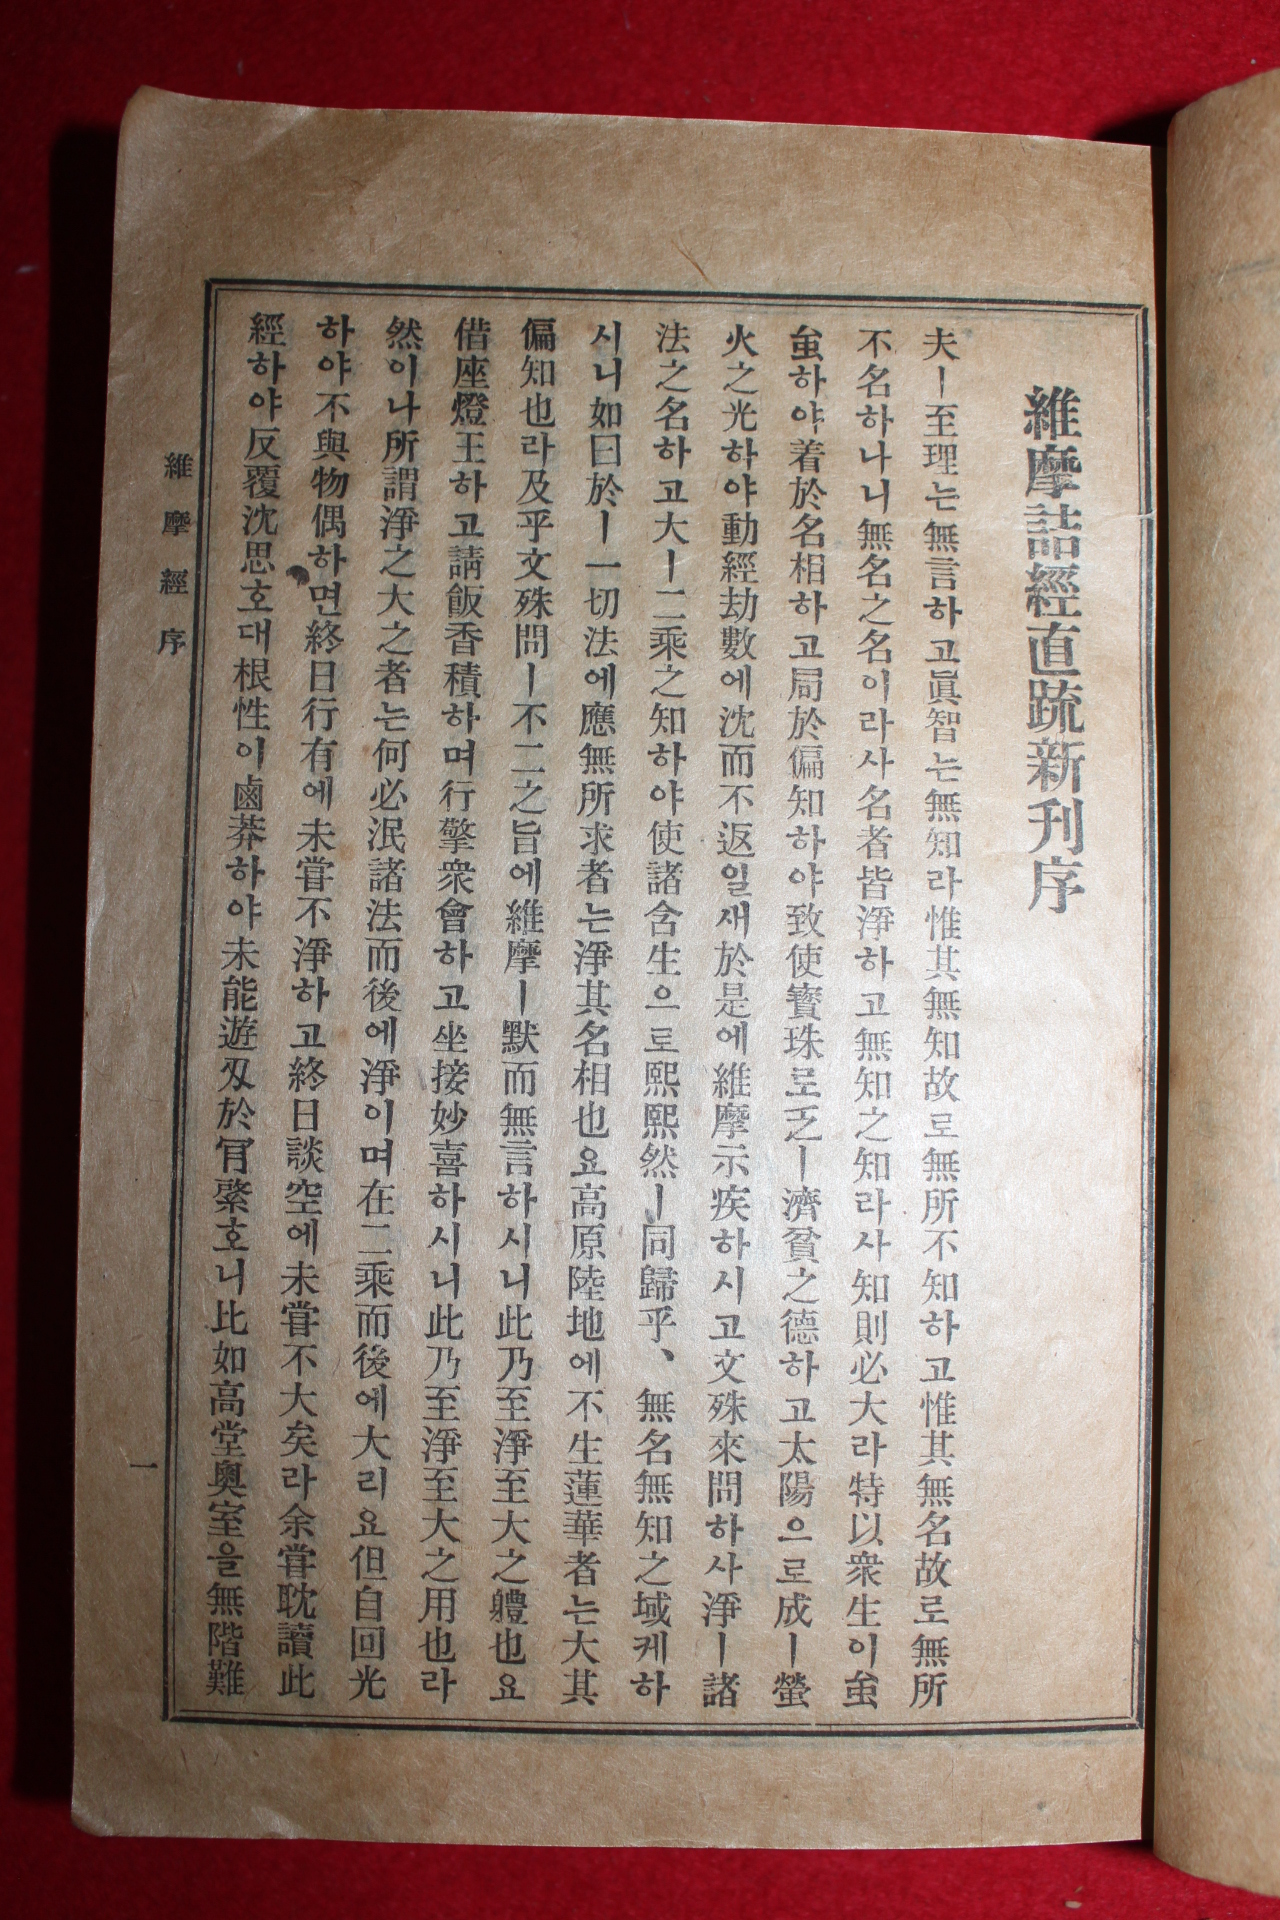 維摩詰經直䟽新刊序
夫ㅣ至理는無言하고眞智는無知라惟其無知故로無所不知하고惟其無名故로無所
不名하나니無名之名이라사名者皆淨하고無知之知라사知則必大라特以衆生이䖝
䖝하야着於名相하고局於偏知하야致使寳珠로乏ㅣ濟貧之德하고太陽으로成ㅣ螢
火之光하야動經劫數에沈而不返일새於是에維摩示疾하시고文殊來問하사淨ㅣ諸
法之名하고大ㅣ二乘之知하야使諸含生으로熙熙然ㅣ同歸乎、無名無知之域케하
시니如曰於ㅣ一切法에應無所求者는淨其名相也요高原陸地에不生蓮華者는大其
偏知也라及乎文殊問ㅣ不二之旨에維摩ㅣ默而無言하시니此乃至淨至大之軆也요
借座燈王하고請飯香積하며行擎衆會하고坐接妙喜하시니此乃至淨至大之用也라
然이나所謂淨之大之者는何必泯諸法而後에淨이며在二乘而後에大리요但自回光
하야不與物偶하면終日行有에未甞不淨하고終日談空에未甞不大矣라余甞耽讀此
經하야反覆沈思호대根性이鹵莽하야未能遊刄於肎綮호니比如高堂奧室을無階難
維摩經序
一